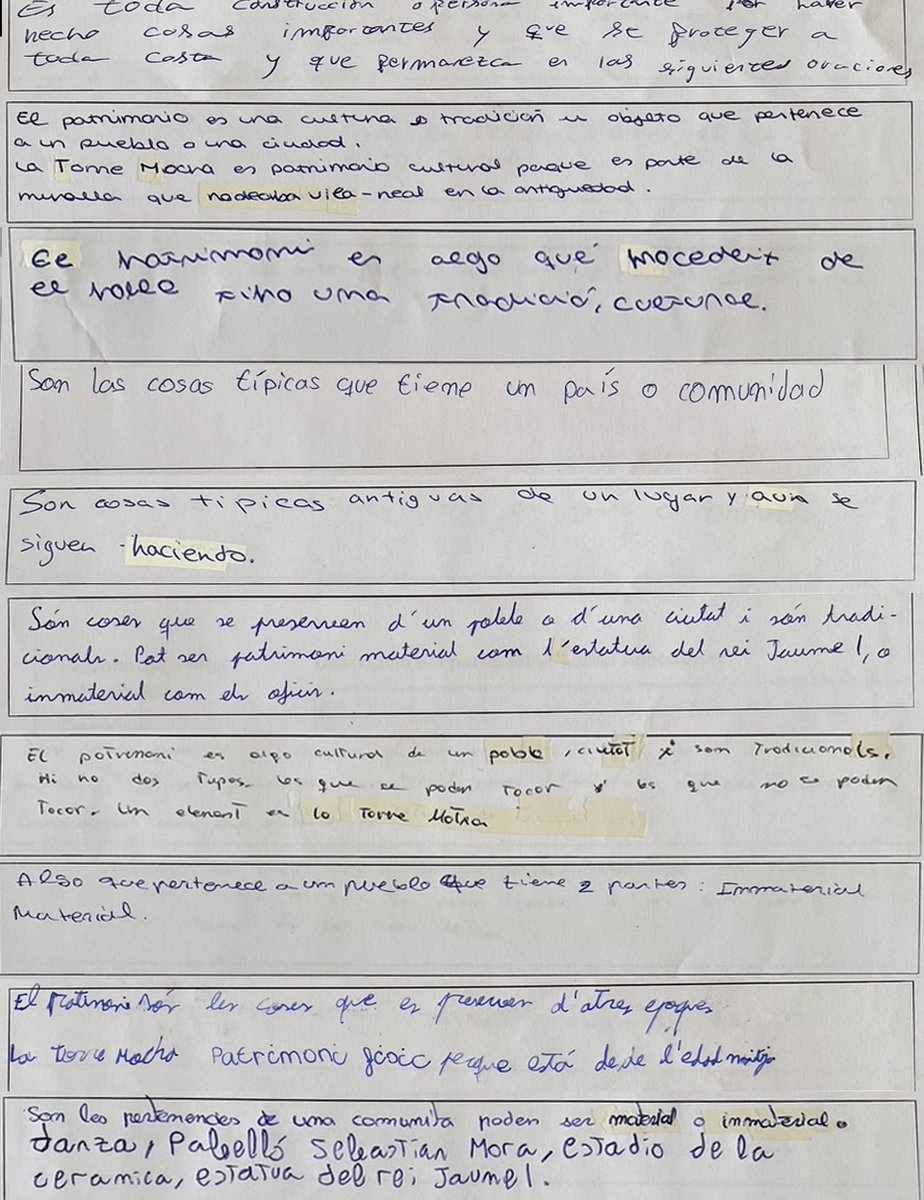 Es toda construcción o persona importante por haver
hecho cosas importantes y que se proteger a
toda costa y que permarezca en las siguientes oraciones
El patrimonio es una cultura o tradición u objeto que pertenece
a un pueblo o una ciudad.
La Torre Mocha es patrimonio cultural porque es parte de la
muralla que rodeaba vila-real en la antiguedad.
El patrimoni es algo que procedeix de
el poble sino una tradició, culturae.
Son las cosas típicas que tiene un país o comunidad
Son cosas típicas antiguas de un lugar y aun se
siguen haciendo.
Són coses que se preserven d'un poble o d'una ciutat i són tradi-
cionals. Pot ser patrimoni material com l'estatua del rei Jaume I, o
inmaterial com els oficis.
El patremoni es algo cultural de un poble, ciutat i som Tradicionals.
Hi no dos Tupos. los que se poden Tocar i los que no se poden
Tocar. Un element es la Torre Motxa
Algo que pertenece a un pueblo que tiene 2 partes: Immaterial
Material.
El Patrimoni són les coses que es preserven d'atres epoques
La torre Mocha Patrimoni físic perque está desde l'edad mitja
Son les pertenencies de una comunita poden ser material o inmaterial.
danza, Pabelló Sebastian Mora, estadio de la
ceramica, estatua del rei Jaume I.